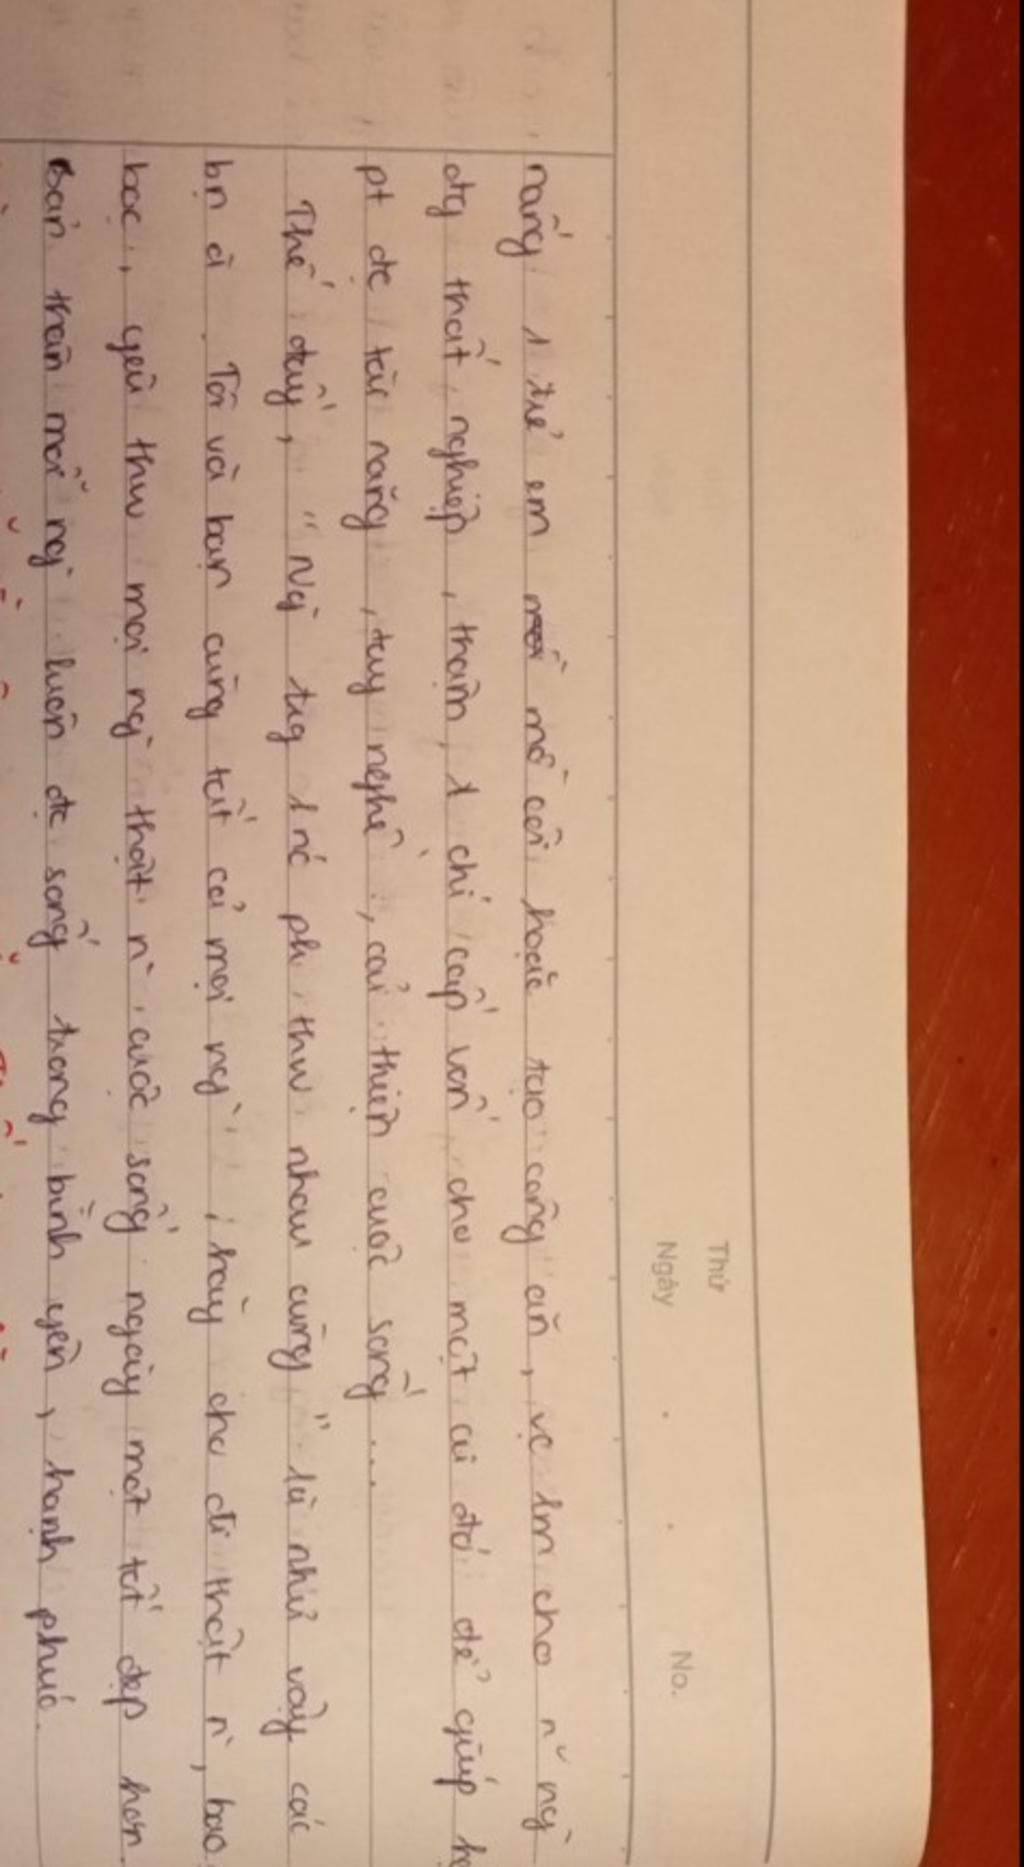 Thứ
Ngày No.
nấng 1 trẻ em mồ côi hoặc tạo công ăn, vc lm cho n~ ng`
đg thất nghiệp, thậm chí cấp vốn cho một ai đó để giúp h
pt đc tài năng, tay nghề, cải thiện cuộc sống...
Thế đấy, " Ng` trg 1 nc phải thw nhau cùng" là như vậy các
bn à. Tôi và bạn cùng tất cả mọi ng`, hãy cho đi thật n`, bao
bọc, yêu thw mọi ng` thật n`, cuộc sống ngày một tốt đẹp hơn.
Bản thân mỗi ng` luôn đc sống trong bình yên, hạnh phúc.